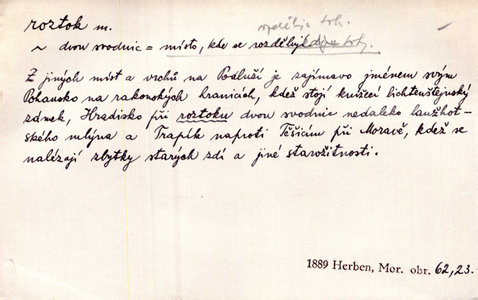 roztok m.
rozděluje toh.
~ dvou svodnic = místo, kde se rozdělují dva toky.
Z jiných míst a vrchů na Podluží je zajímavo jménem svým
Pohansko na rakouských hranicích, kdež stojí knížecí lichtenštejnský
zámek, Hradisko při roztoku dvou svodnic nedaleko lanžhot-
ského mlýna a Trapík naproti Těšicím při Moravě, kdež se
nalézají zbytky starých zdí a jiné starožitnosti.
1889 Herben, Mor. obr. 62,23.